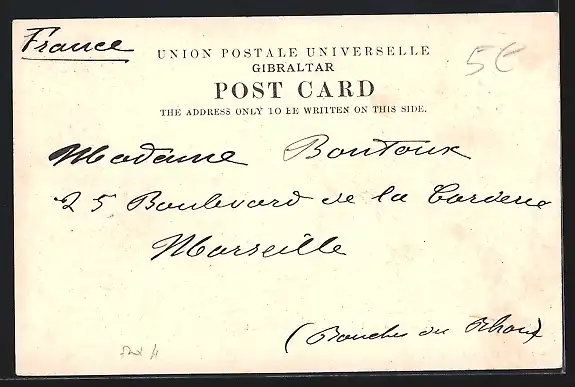 France
UNION POSTALE UNIVERSELLE
GIBRALTAR
5€
POST CARD
THE ADDRESS ONLY TO BE WRITTEN ON THIS SIDE.
Madame Bontoux
25 Boulevard de la Corderie
Marseille
(Bouches du Rhone)